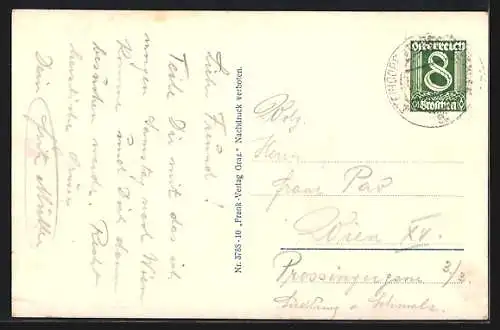 Lieber Freund!
Teile Dir mit das ich
morgen Samstag nach Wien
komme und Dich dann
besuchen werde. Recht
herzliche Grüsse
Dein Fritz Müller
Nr. 3765-10 „Frank-Verlag Graz." Nachdruck verboten.
Österreich
8
Groschen
Herrn
Franz
Wien XV.
2/3
Siedlung a. Schmelz